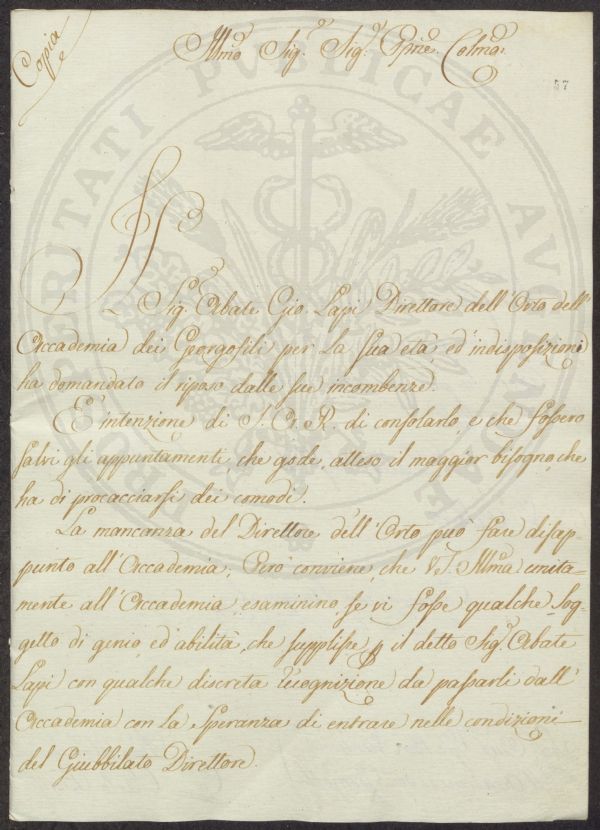 Copia
Illmo Sig.r Sig.r Prne Colmo
57
Il
Sig.r Abate Gio. Lapi Direttore dell'Orto dell'
Accademia dei Georgofili per la sua età ed'indisposizioni
ha domandato il riposo dalle sue incombenze.
E' intenzione di S. A. R. di consolarlo, e che fossero
salvi gli appuntamenti, che gode, atteso il maggior bisogno, che
ha di procacciarsi dei comodi.
La mancanza del Direttore dell'Orto può fare disap-
punto all'Accademia; Però conviene, che VS. Illma unita-
mente all'Accademia esaminino, se vi fosse qualche sog-
getto di genio, ed'abilità, che supplisse p il detto Sig.r Abate
Lapi con qualche discreta recognizione da passarli dall'
Accademia con la speranza di entrare nelle condizioni
del Giubbilato Direttore.
PROSPERITATI PUBLICAE AUGENDAE